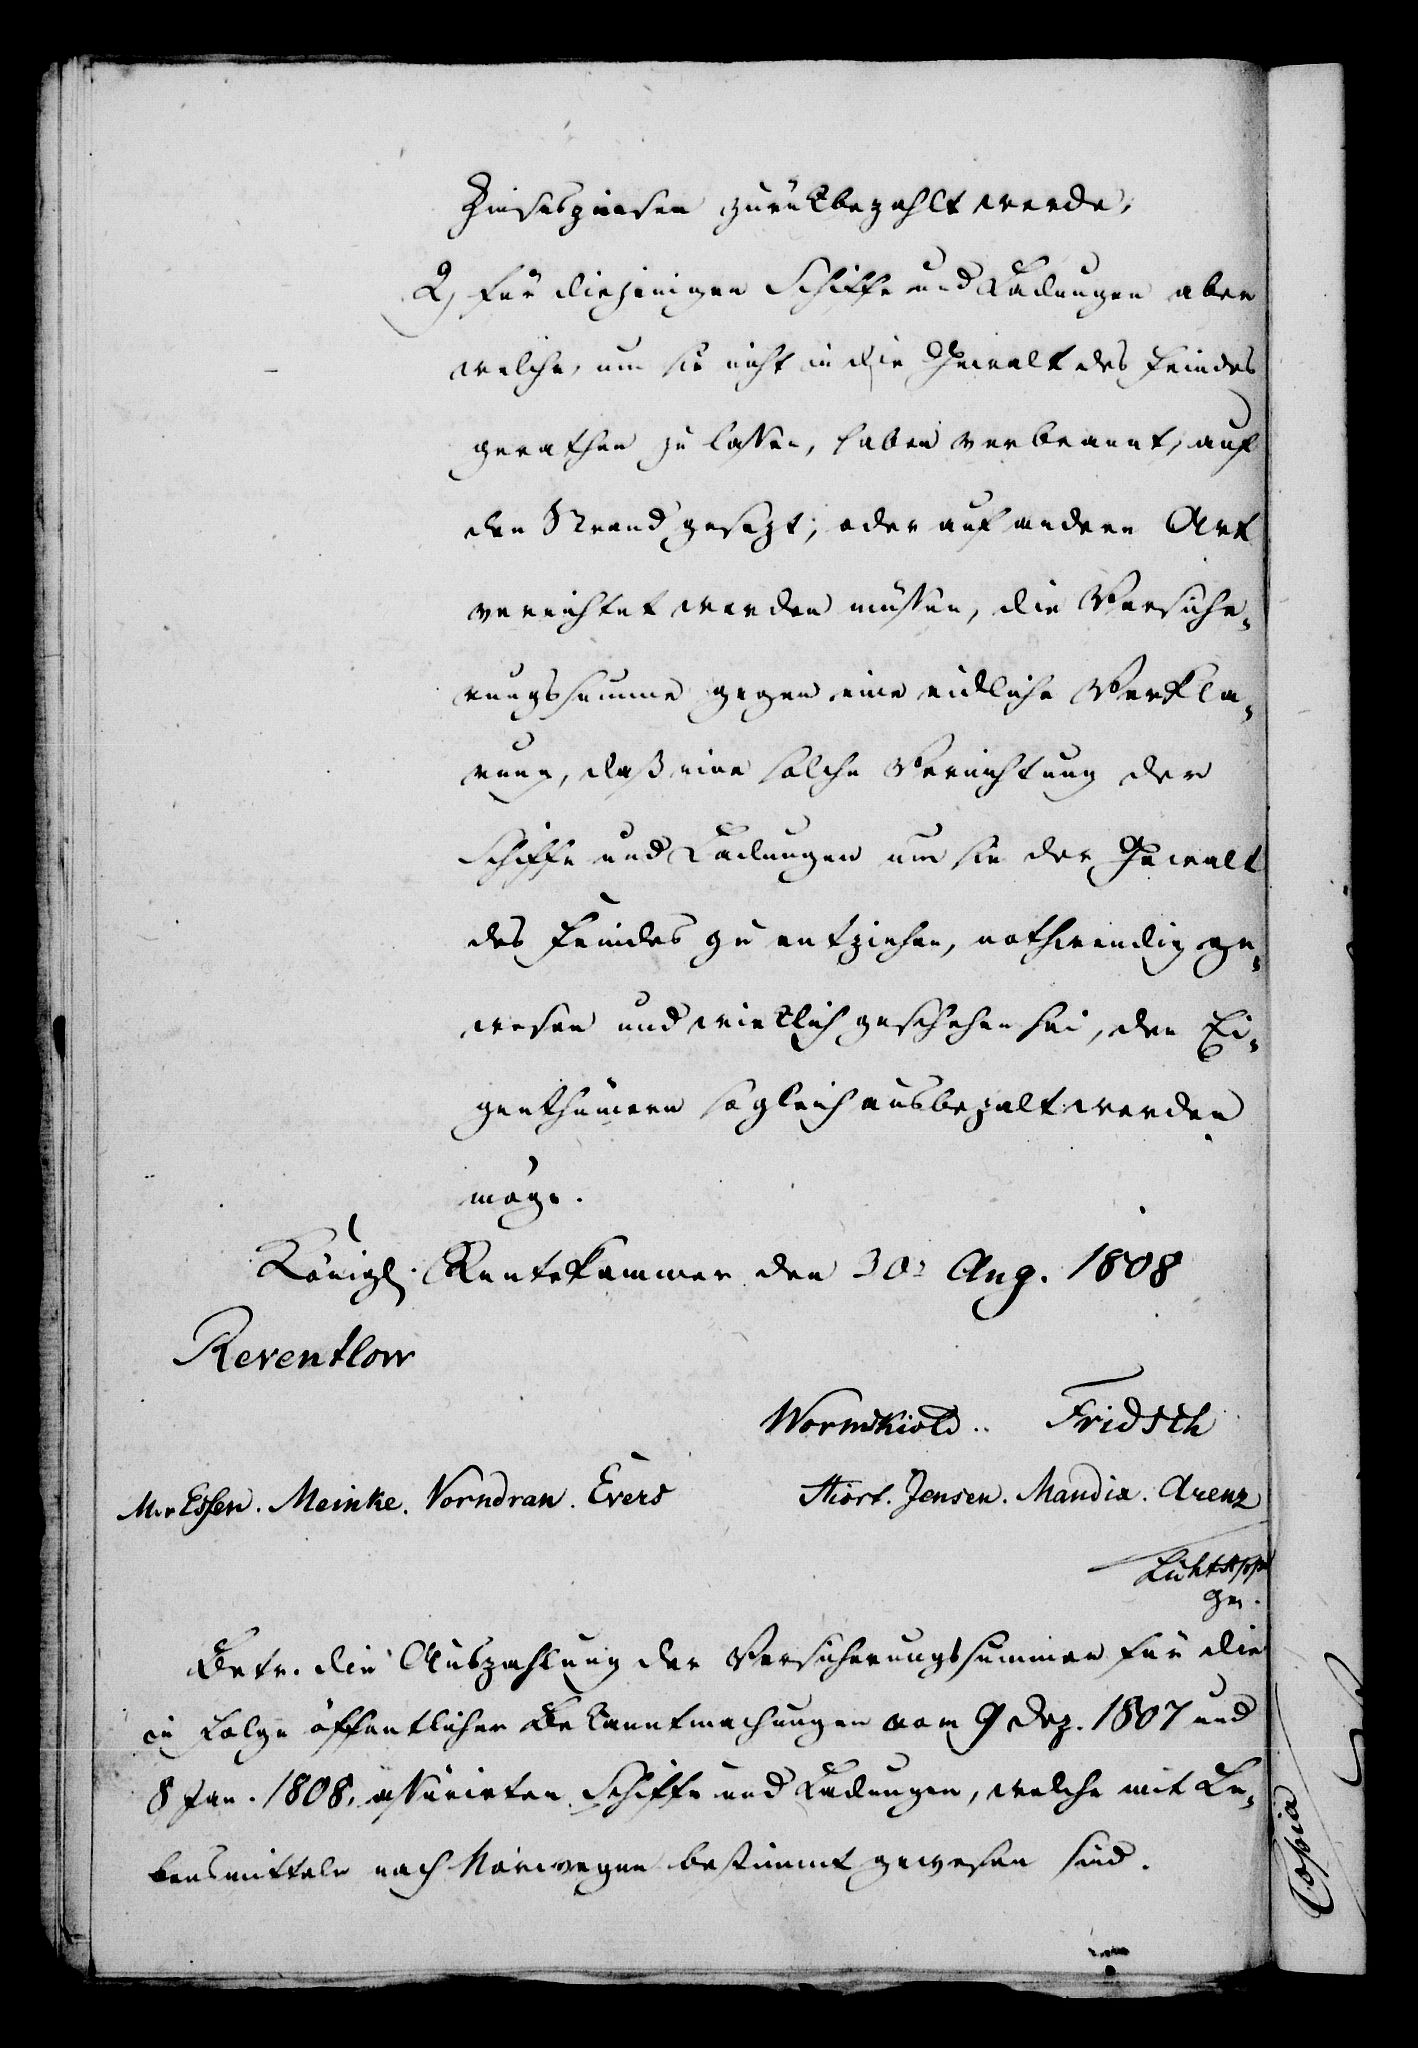 Zinseszinsen zurückbezahlt werde,
2, für diejenigen Schiffe und Ladungen aber
welche, um sie nicht in die Gewalt des Feindes
gerathen zu lassen, haben verbrannt, auf
den Strand gesezt, oder auf andere Art
vernichtet werden müssen, die Versiche-
rungssumme gegen eine eidliche Verkla-
rung, daß eine solche Vernichtung der
Schiffe und Ladungen um sie der Gewalt
des Feindes zu entziehen, nothwendig ge-
wesen und wirklich geschehen sei, den Ei-
genthümern sogleich ausbezalt werden
möge.
Königl. Rentekammer den 30. Aug. 1808
Reventlow
Wormskiold. Fridsch
M. v Essen. Meinke. Vorndran. Evers
Hiort. Jensen. Mandix. Arenz
Betr. die Auszahlung der Versicherungssummen für die
in Folge öffentlicher Bekanntmachungen vom 9 Dez. 1807 und
8 Jan. 1808, assurirten Schiffe und Ladungen, welche mit Le-
bensmitteln nach Norwegen bestimmt gewesen sind.
Copia